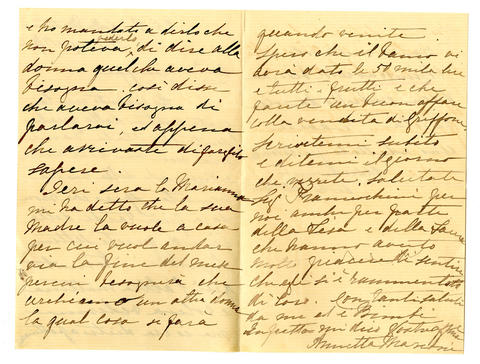 e ho mandato a dirlo che
vederlo
non poteva, di dire alla
donna quel che aveva
bisogna. così disse
che aveva bisogna di
parlarvi, ed appena
che arrivaste di farglielo
sapere.
Ieri sera la Marianna
mi ha detto che la sua
Madre la vuole a casa
per cui vuol andar
via la fine del mese
percui bisognerà che
cerchiamo un altra donna
la qual cosa si farà
quando venite.
Spero che il
dato le 5 mila lire
e tutti i frutti e che
farete un buon affare
colla vendita di
Scrivetemi subito
e ditemi il giorno
che verrete, salutate
Sig. per
noi anche per parte
della Lisa e della
che hanno avuto
molto piacere di sentire
che gli si è rammentato
di loro. Con tanti saluti
da me ed e Bimbi
In fretta mi dico Vostra
Annetta